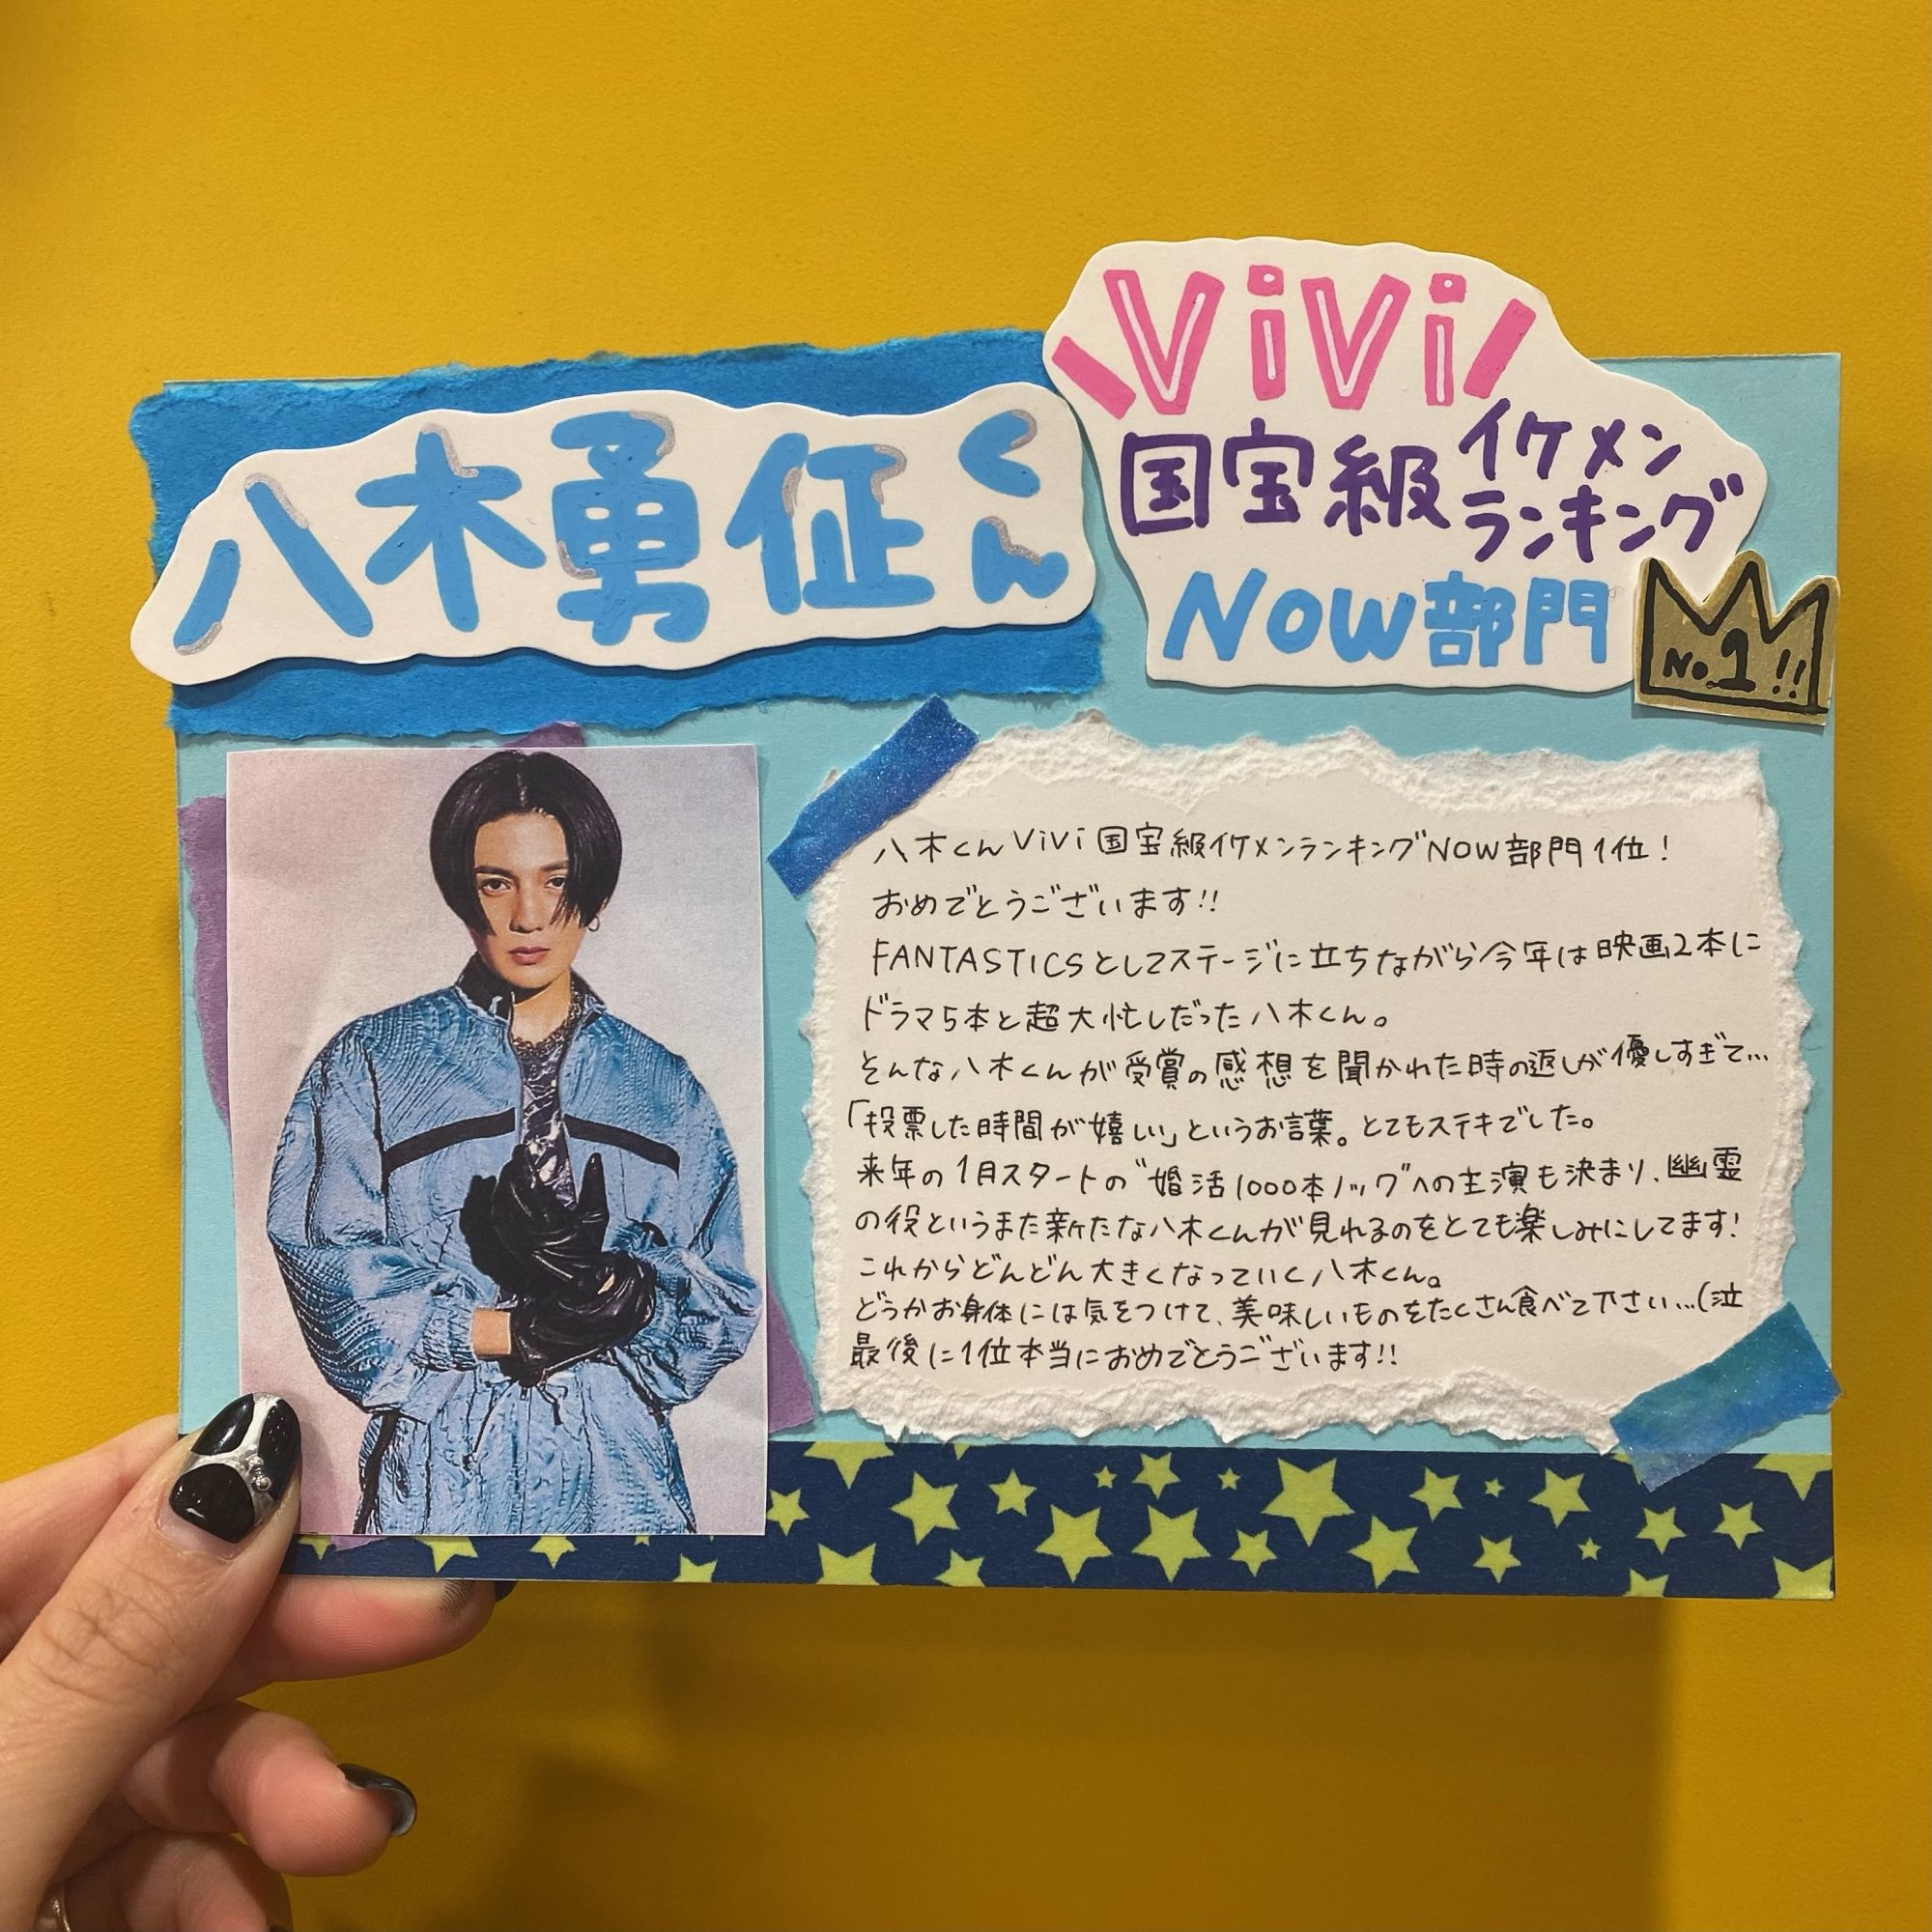 八木勇征くん
ViVi
国宝級イケメンランキング
NOW部門
No.1!!
八木くんViVi国宝級イケメンランキングNOW部門1位!
おめでとうございます!!
FANTASTICSとしてステージに立ちながら今年は映画2本に
ドラマ5本と超大忙しだった八木くん。
そんな八木くんが受賞の感想を聞かれた時の返しが優しすぎて…
「投票した時間が嬉しい」というお言葉。とてもステキでした。
来年の1月スタートの"婚活1000本ノック"への主演も決まり、幽霊
の役というまた新たな八木くんが見れるのをとても楽しみにしてます!
これからどんどん大きくなっていく八木くん。
どうかお身体には気をつけて、美味しいものをたくさん食べて下さい…(泣
最後に1位本当におめでとうございます!!